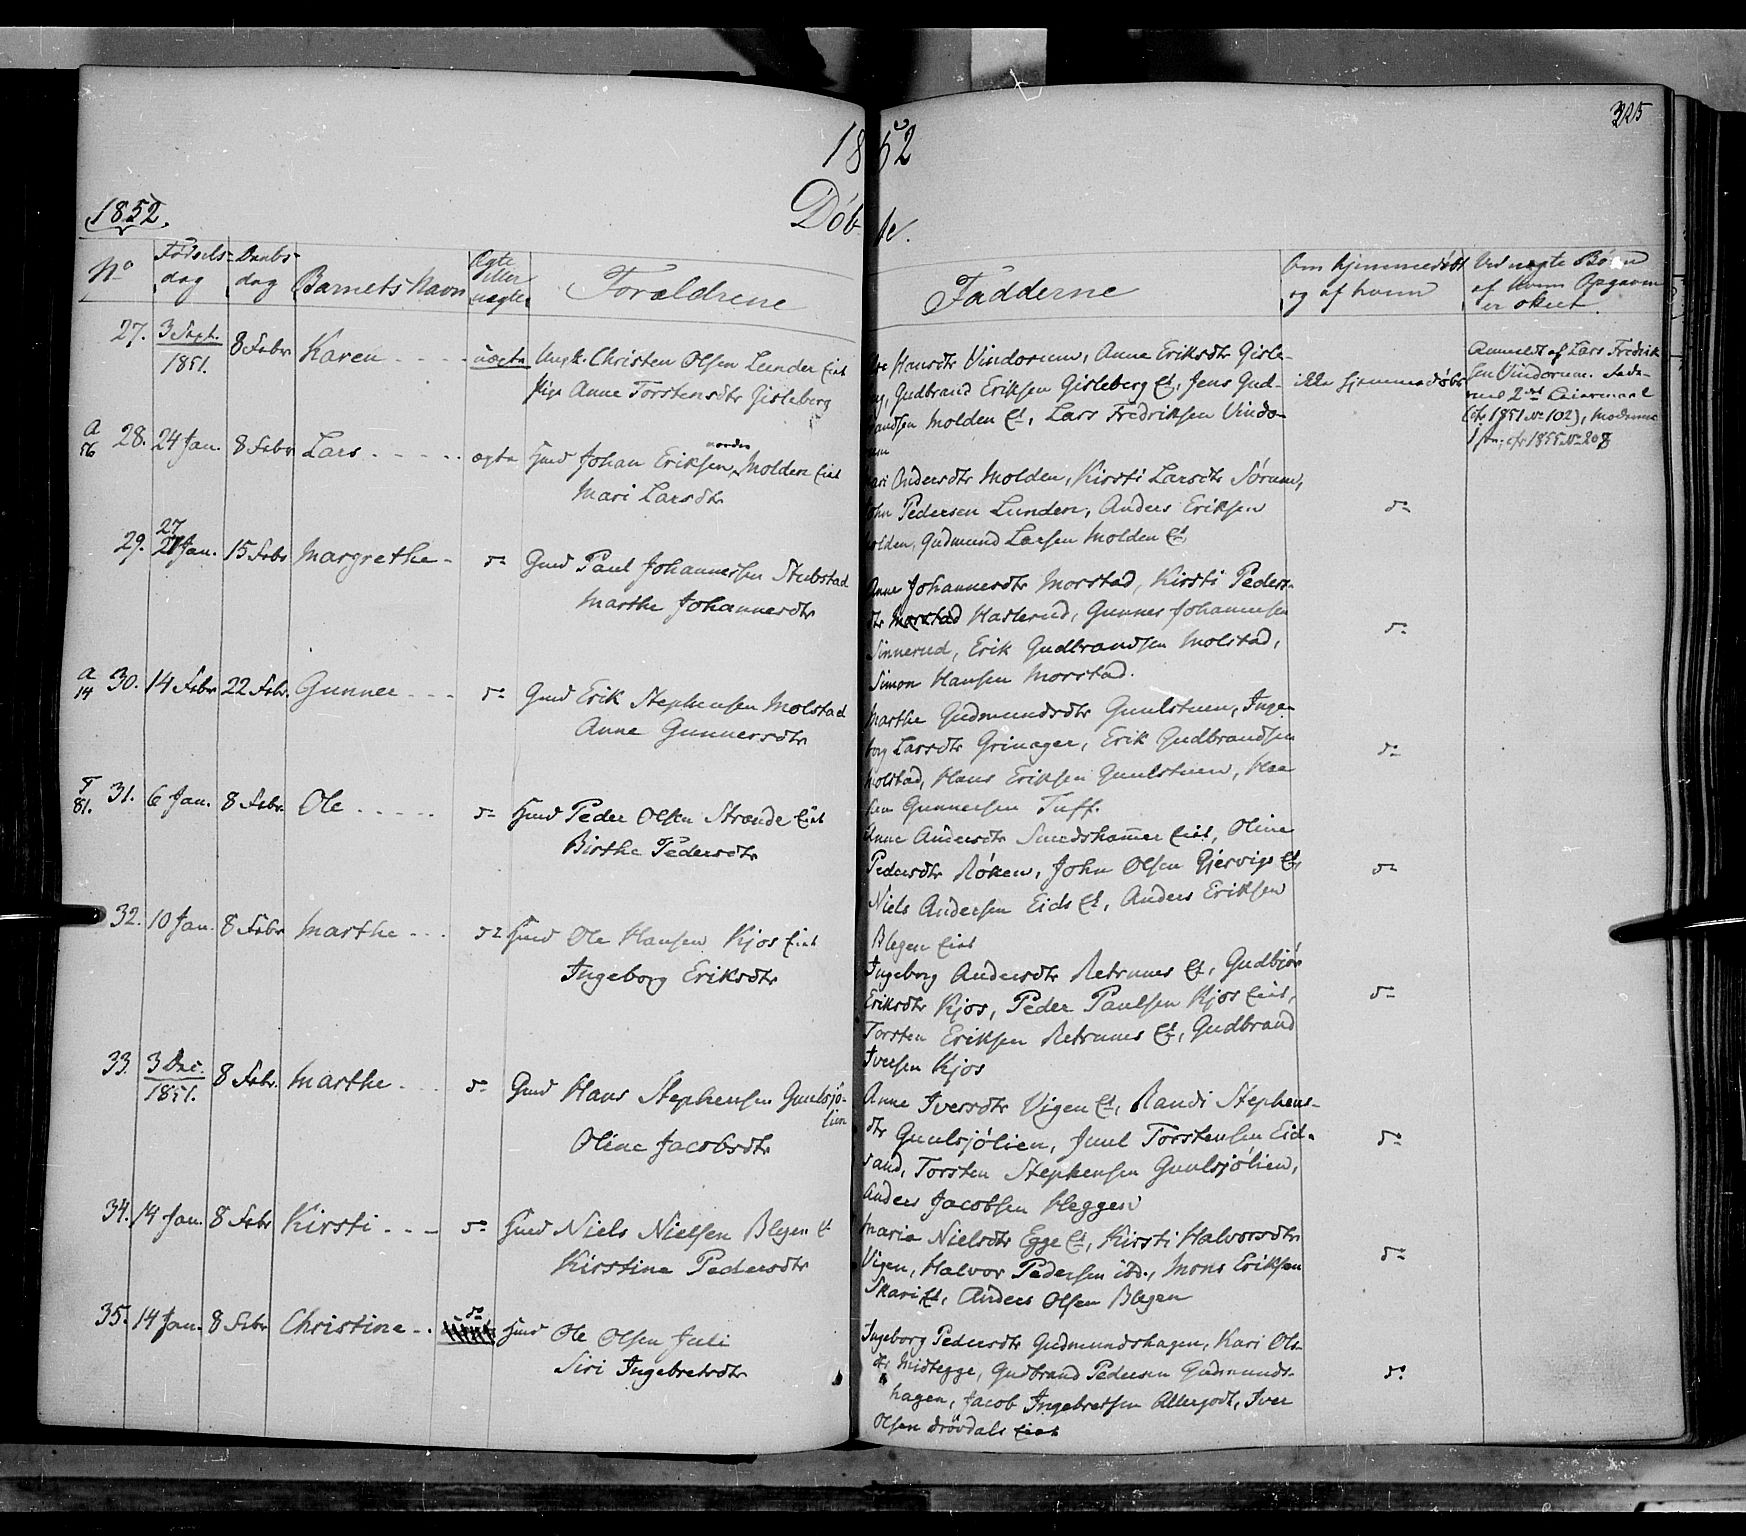 325
1852
1852.
Døbte.
No
Fødsels-
dag
Daabs-
dag
Barnets Navn
Ægte
eller
uægte
Forældrene
Fadderne
Om hjemmedøbt
og af hvem
Ved uægte Børn
af hvem Opgaven
er skeet.
27. 3 Sept. 1851. 8 Febr Karen - - - - uægte Ungk. Christen Olsen Lunder Eiet
Pige Anne Torstensdtr Gisleberg
Hansdtr Vindorum, Anne Eriksdtr Gisle-
Gudbrand Eriksen Gisleberg Et, Jens Gud-
andsen Molden Et, Lars Fredriksen Vindo-
ikke hjemmedøbt
Anmeldt af Lars Fredrik
sen Vindorum. Fade-
rens 2det Leiermaal
(cfr 1851 No 102), Moderens
1ste, cfr 1855 No 208
A
56
28. 24 Jan. 8 Febr Lars - - - - - ægte Gmd Johan Eriksen nordre Molden Eiet
Mari Larsdtr
Andersdtr Molden, Kirsti Larsdtr Sørum,
John Pedersen Lunden, Anders Eriksen
Molden, Gudmund Larsen Molden Et
do
29. 27 Jan. 15 Febr Margrethe - do Gmd Paul Johannessen Stubstad
Marthe Johannesdtr
Anne Johannesdtr Morstad, Kirsti Peders-
dtr Morstad Haslerud, Gunner Johannesen
Sinnerud, Erik Gudbrandsen Molstad,
Simon Hansen Morstad.
do
A
14
30. 14 Febr 22 Febr. Gunner - - - do Gmd Erik Stephensen Molstad
Anne Gunnersdtr
Marthe Gudmundsdtr Guulstuen, Inge-
borg Larsdtr Grinager, Erik Gudbrandsen
Molstad, Hans Eriksen Guulstuen, Haa
Gunnersen Tuff.
do
T
81.
31. 6 Jan. 8 Febr. Ole - - - - - do Gmd Peder Olsen Strande Eiet
Birthe Pedersdtr
Anne Andersdtr Smedshammer Eiet, Oline
Pedersdtr Røken, John Olsen Gjervigs Et,
Niels Andersen Eids Et, Anders Eriksen
Blegen Eiet
do
32. 10 Jan. 8 Febr Marthe - - - do Gmd Ole Hansen Kjos Eiet
Ingeborg Eriksdtr
Ingeborg Andersdtr Retrums Et, Gudbjør
Eriksdtr Kjos, Peder Paulsen Kjos Eiet,
Torsten Eriksen Retrums Et, Gudbrand
Iversen Kjos
do
33. 3 Dec. 1851. 8 Febr. Marthe - - - do Gmd Hans Stephensen Guulsjø-
lien
Oline Jacobsdtr
Anne Iversdtr Vigen Et, Randi Stephens-
dtr Guulsjølien, Juul Torstensen Eid-
sand, Torsten Stephensen Guulsjølien,
Anders Jacobsen Heggen
do
34. 14 Jan. 8 Febr Kirsti - - - do Gmd Niels Nielsen Blegen Et
Kirstine Pedersdtr
Marie Nielsdtr Egge Et, Kirsti Halvorsdtr
Vigen, Halvor Pedersen ibd., Mons Eriksen
Skari Et, Anders Olsen Blegen
do
35. 14 Jan. 8 Febr Christine - - do Gmd Ole Olsen Juli
Siri Ingebretsdtr
Ingeborg Pedersdtr Gudmundshagen, Kari Ols-
dtr Midtegge, Gudbrand Pedersen Gudmunds-
hagen, Jacob Ingebretsen Allergodt, Iver
Olsen Drøvdals Eiet
do